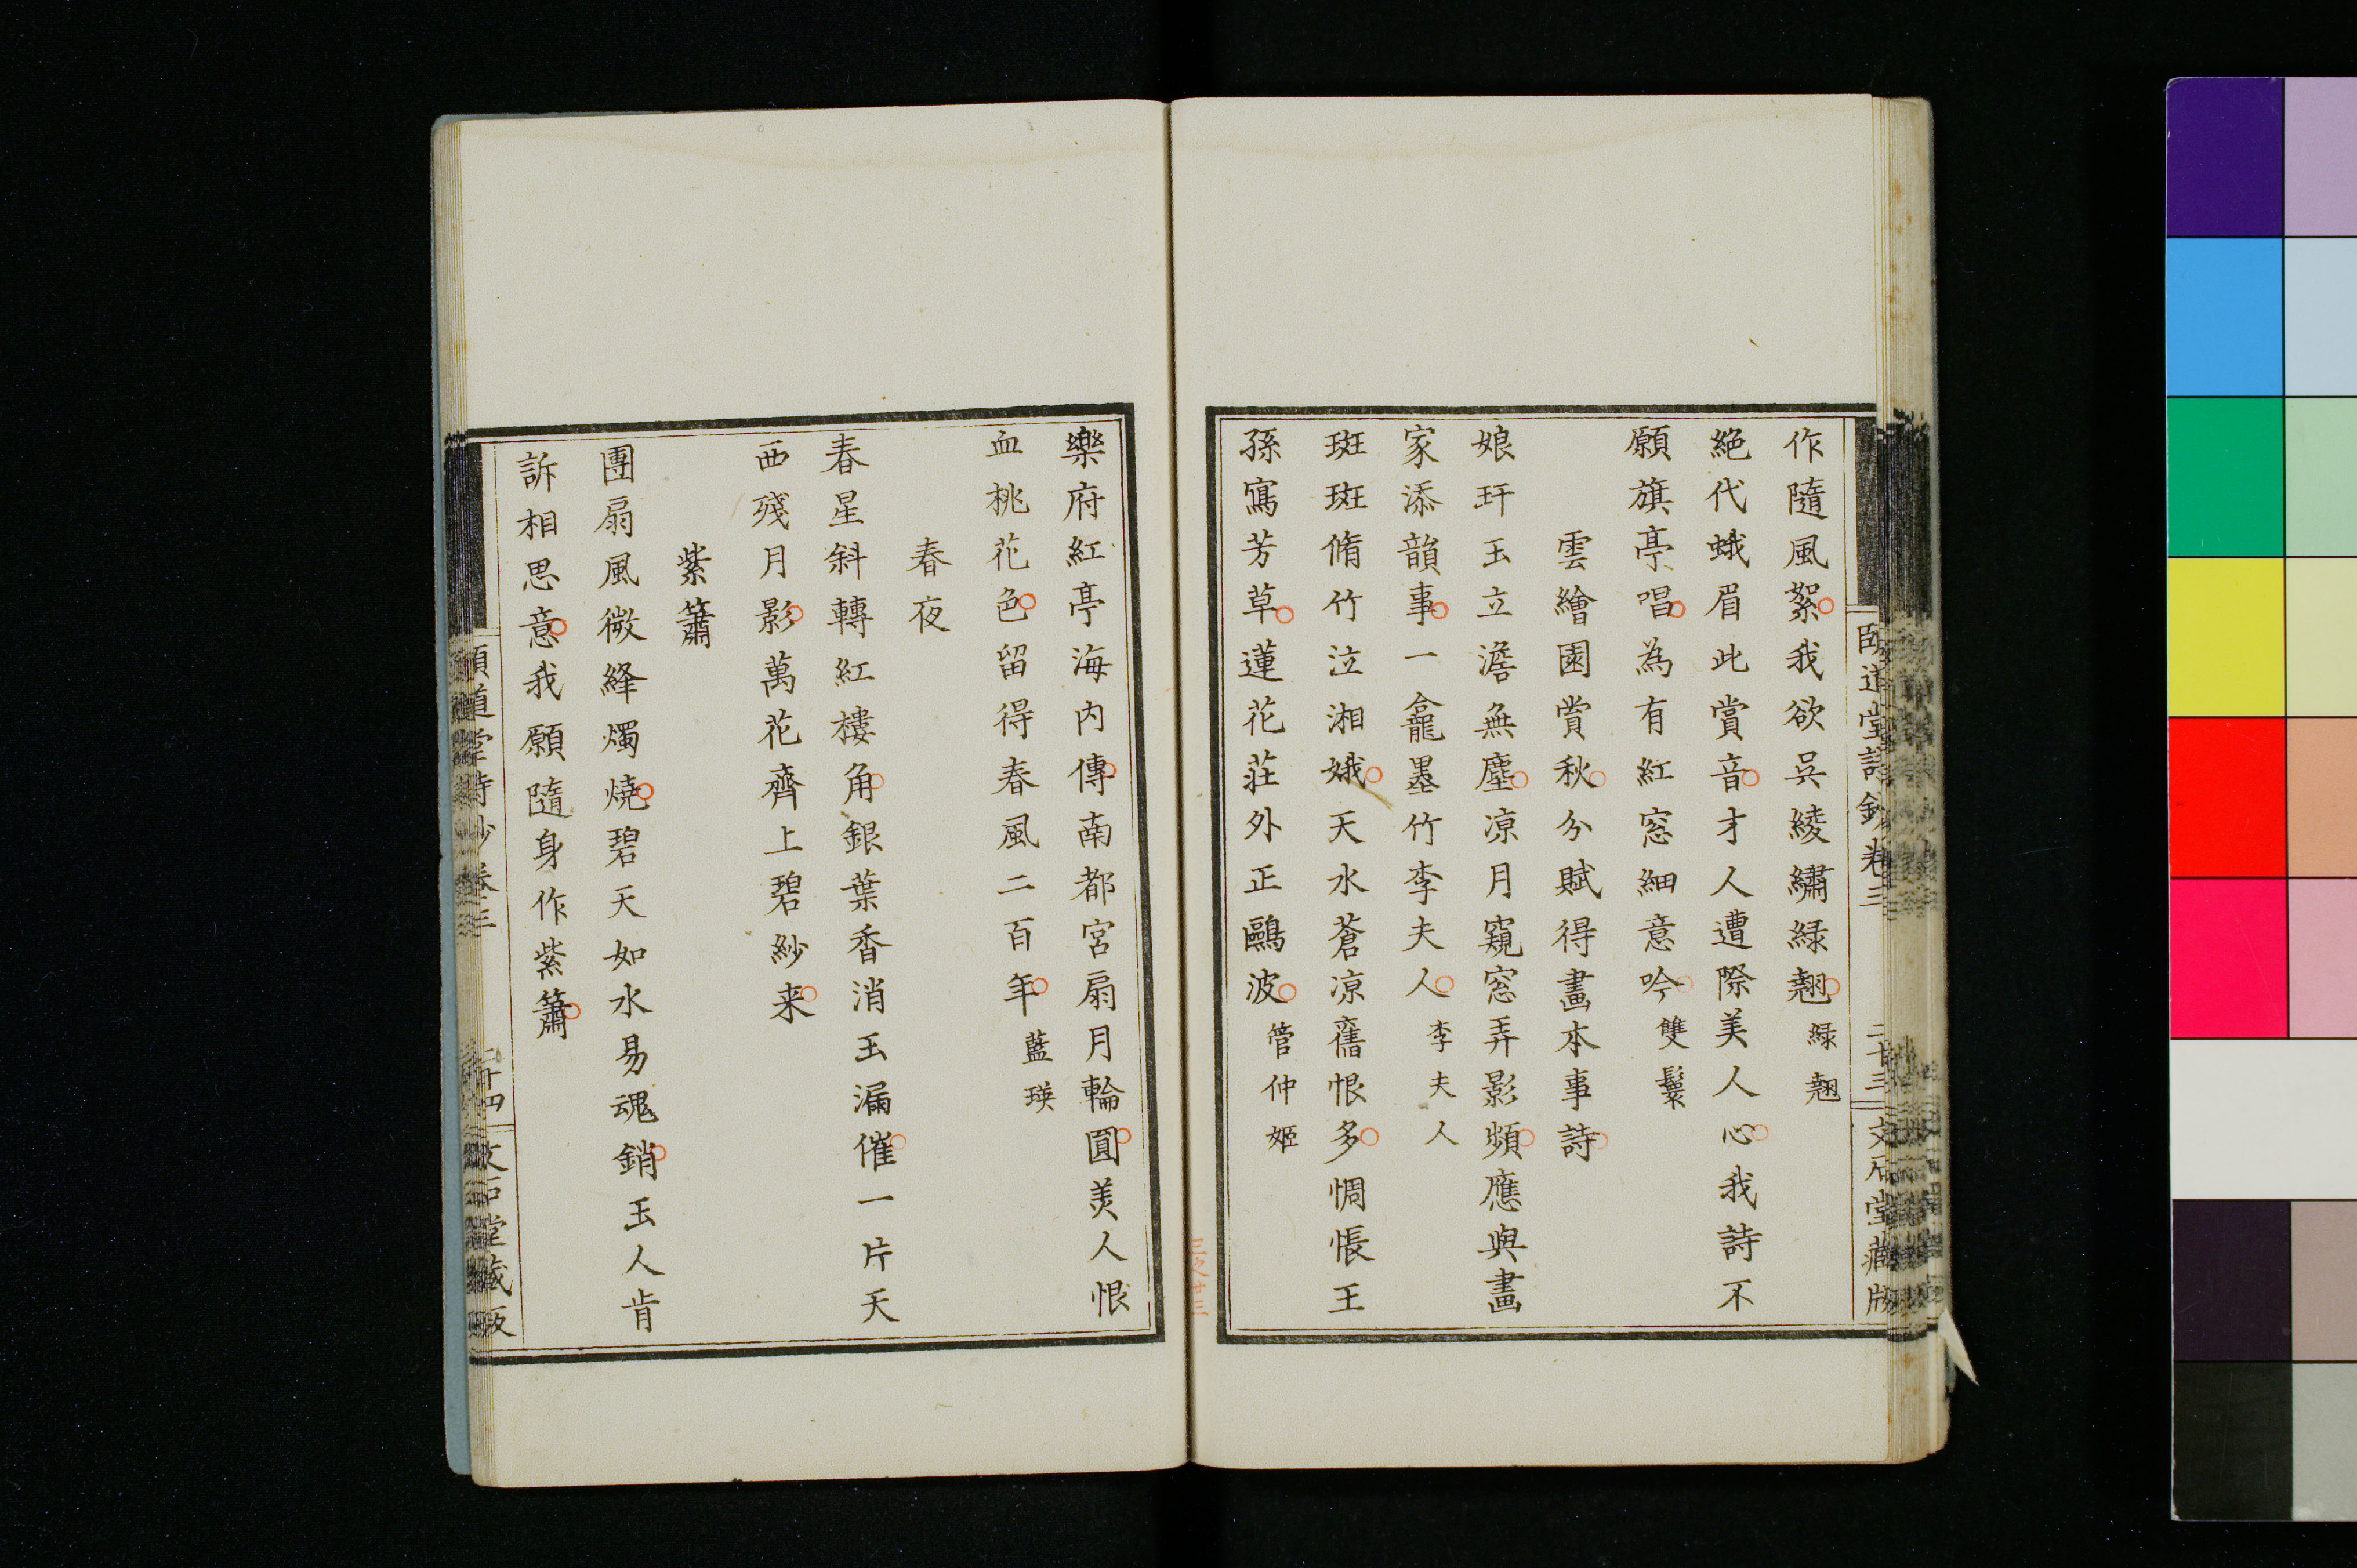 作隨風絮我欲呉綾繡緑翹緑翹
絶代蛾眉此賞音才人遭際美人心我詩不
願旗亭唱為有紅窓細意吟雙鬟
雲繪園賞秋分賦得畫本事詩
娘玕玉立澹無塵凉月窺窓弄影頻應與畫
家添韻事一龕墨竹李夫人李夫人
斑斑脩竹泣湘娥天水蒼凉舊恨多惆悵王
孫寫芳草蓮花莊外正鷗波管仲姬
二十三
文石堂藏版
三之廿三
樂府紅亭海内傳南都宮扇月輪圓美人恨
血桃花色留得春風二百年藍瑛
春夜
春星斜轉紅樓角銀葉香消玉漏催一片天
西殘月影萬花齊上碧紗来
紫簫
團扇風微絳燭燒碧天如水易魂銷玉人肯
訴相思意我願隨身作紫簫
頤道堂詩鈔卷三
二十四
文石堂藏版